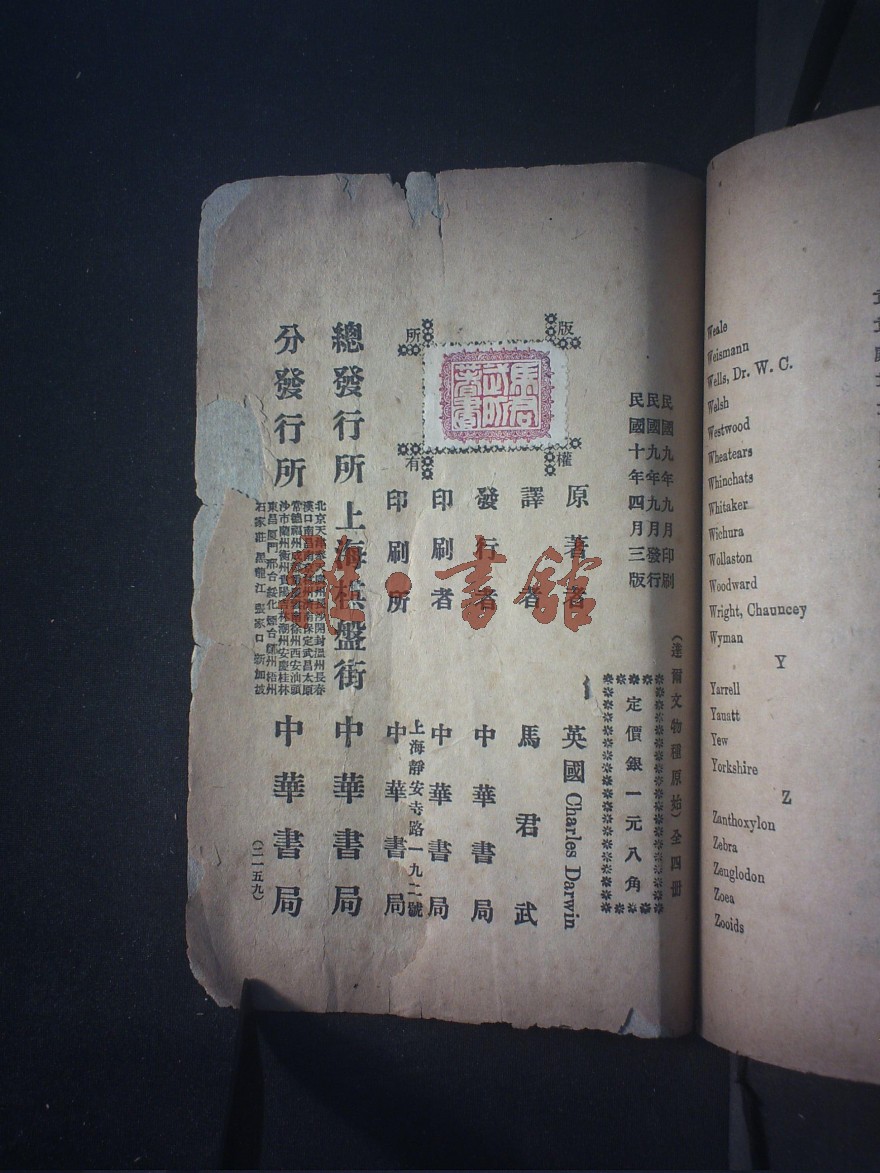 民國九年九月印刷
民國九年九月發行
民國十年四月三版
(達爾文物種原始)全四冊
定價銀一元八角
版權所有
馬君武所著書
原著者 英國 Charles Darwin
譯者 馬君武
發行者 中華書局
印刷者 中華書局
上海靜安寺路一九二號
印刷所 中華書局
總發行所 上海棋盤街 中華書局
分發行所 中華書局
北京天津 長沙開封溫州長春
漢口南昌 濟南保定武昌太原
常德福州成都 徐州西安汕頭
沙市蘭州衢州貴陽吉林潮州安慶桂林
東昌廈門邢台綏化煙台鄭州梧州
石家莊 黑龍江 張家口 新加坡
(二一五九)
雜·書館
Weale
Weismann
Wells, Dr. W. C.
Walsh
Westwood
Wheatears
Whinchats
Whitaker
Wichura
Wollaston
Woodward
Wright, Chauncey
Wyman
Y
Yarrell
Yaustt
Yew
Yorkshire
Z
Zanthoxylon
Zebra
Zeuglodon
Zoea
Zooids